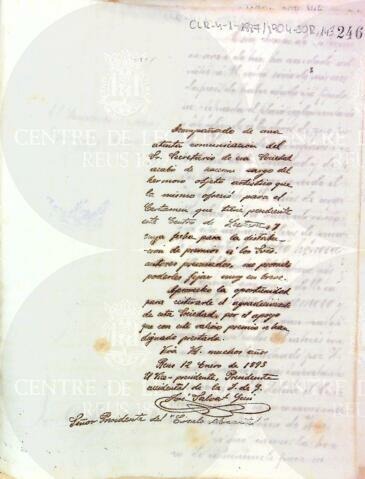 CLR-4-1-1887/1904-COR,143 246
Acompañado de una
atenta comunicacion del
Sr. Secretario de esa Sociedad
acabo de hacerme cargo del
hermoso objeto artístico que
la misma ofreció para el
Certamen que tiene pendiente
este Centro de Lectura y
cuya fecha para la distribu-
cion de premios a los Sres.
autores premiados, me prometo
poderles fijar muy en breve.
Aprovecho la oportunidad
para reiterarle el agradecimiento
de esta Sociedad, por el apoyo
que con este valioso premio se han
dignado prestarla.
Viva V. muchos años
Reus 12 Enero de 1895
El Vice-presidente, Presidente
accidental de la J. de G.
José Salvat
Señor Presidente del "Círculo
CENTRE DE LECTURA
REUS